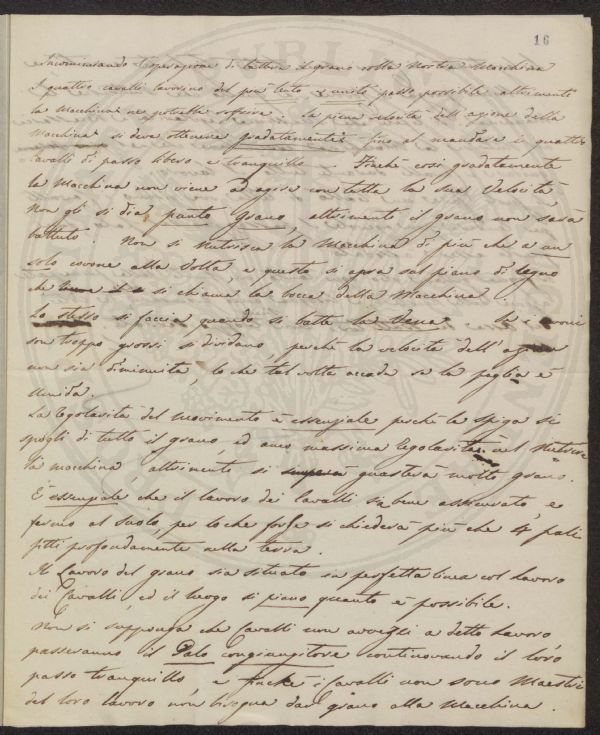 16
Incominciando l'operazione di battere il grano colla Nostra Macchina
I quattro cavalli lavorino del piu lento & unito passo possibile altrimente
la Macchina ne potrebbe soffrire. la piena velocità dell'azione della
Macchina si deve ottenere gradatamente, fino al mandare i quattro
Cavalli di passo libero e tranquillo — Finchè così gradatamente
la Macchina non viene ad agire con tutta la sua Velocità
non gli si dia punto grano, altrimente il grano non sarà
battuto. Non si nutrisca la Macchina di più che a un
solo covone alla Volta, e questo si apra sul piano di legno
che si chiama la bocca della Macchina
Lo stesso si faccia quando si batte la Vena. Se i covoni
son troppo grossi si dividano, perchè la velocità dell'azione
non sia diminuita, lo che tal volta accade se la paglia è
umida.
La regolarità del movimento è essenziale perchè la spiga si
spogli di tutto il grano, ed anco massima regolarità nel Nutrire
la macchina, altrimente si guasterà molto grano.
È essenziale che il lavoro dei Cavalli sia bene assicurato, e
fermo al suolo, per lo che forse si chiederà più che 4 pali
fitti profondamente nella terra.
Il Lavoro del grano sia situato in perfetta linea col Lavoro
dei Cavalli, ed il luogo si piano quanto è possibile.
Non si supponga che Cavalli non avvezzi a detto Lavoro
passeranno il Palo congiungitore continovando il loro
passo tranquillo e finchè i Cavalli non sono Maestri
del loro lavoro non bisogna dar grano alla Macchina.